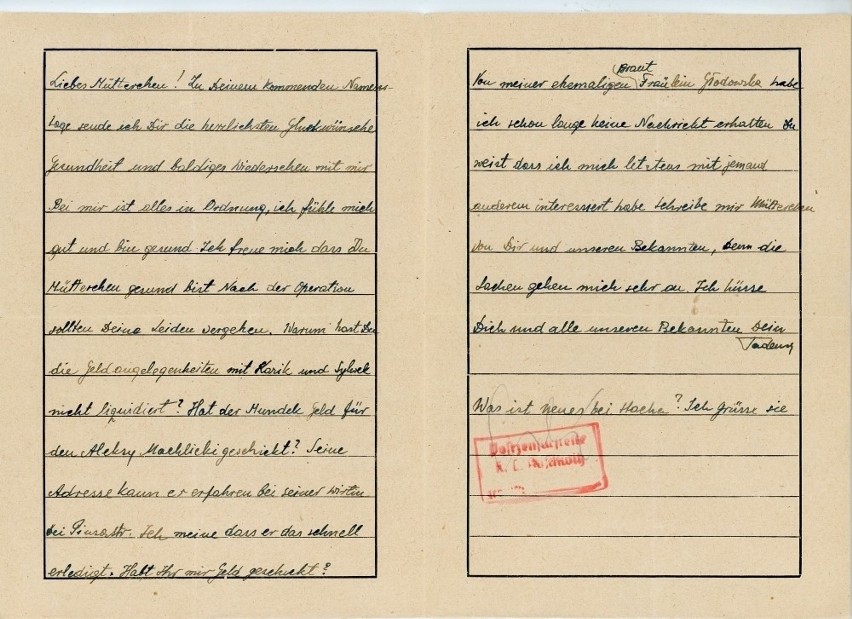 Liebes Mütterchen! Zu Deinem kommenden Namens-
tage sende ich Dir die herzlichsten Glückwünsche
Gesundheit und baldiges Wiedersehen mit mir
Bei mir ist alles in Ordnung, ich fühle mich
gut und bin gesund. Ich freue mich dass Du
Mütterchen gesund bist Nach der Operation
sollten Deine Leiden vergehen. Warum hast Du
die Geldangelegenheiten mit Karik und Sylwek
nicht liquidiert? Hat der Mundek Geld für
den Aleksy Machlicki geschickt? Seine
Adresse kann er erfahren bei seiner Wirtin
bei Piusastr. Ich meine dass er das schnell
erledigt. Habt Ihr mir Geld geschickt?
Braut
Von meiner ehemaligen Fräulein Głodowska habe
ich schon lange keine Nachricht erhalten Du
weist dass ich mich letztens mit jemand
anderem interessiert habe Schreibe mir Mütterchen
von Dir und unseren Bekannten, denn die
Sachen gehen mich sehr an. Ich küsse
Dich und alle unseren Bekannten Dein
Tadeusz
Was ist neues bei Hachen? Ich grüsse sie
Postzensurstelle
K.L.